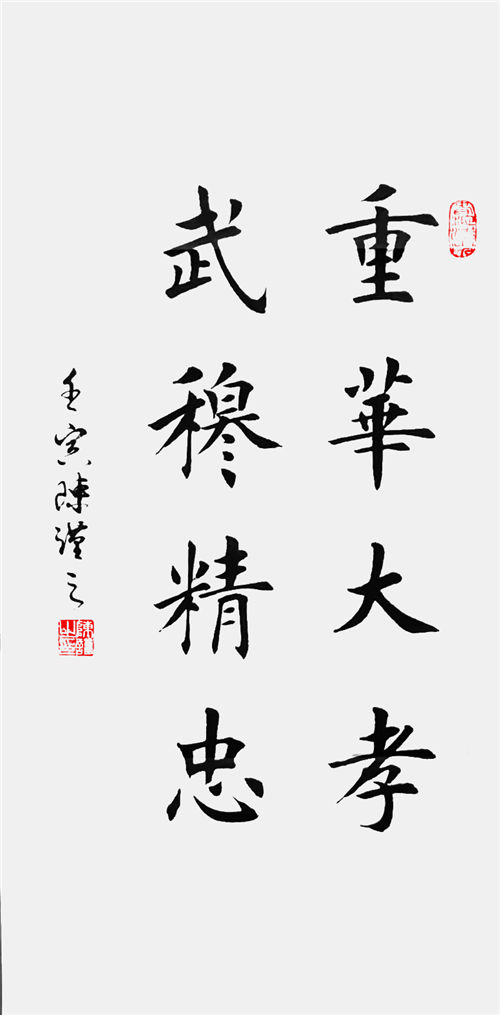 重華大孝
武穆精忠
壬寅陳謹之